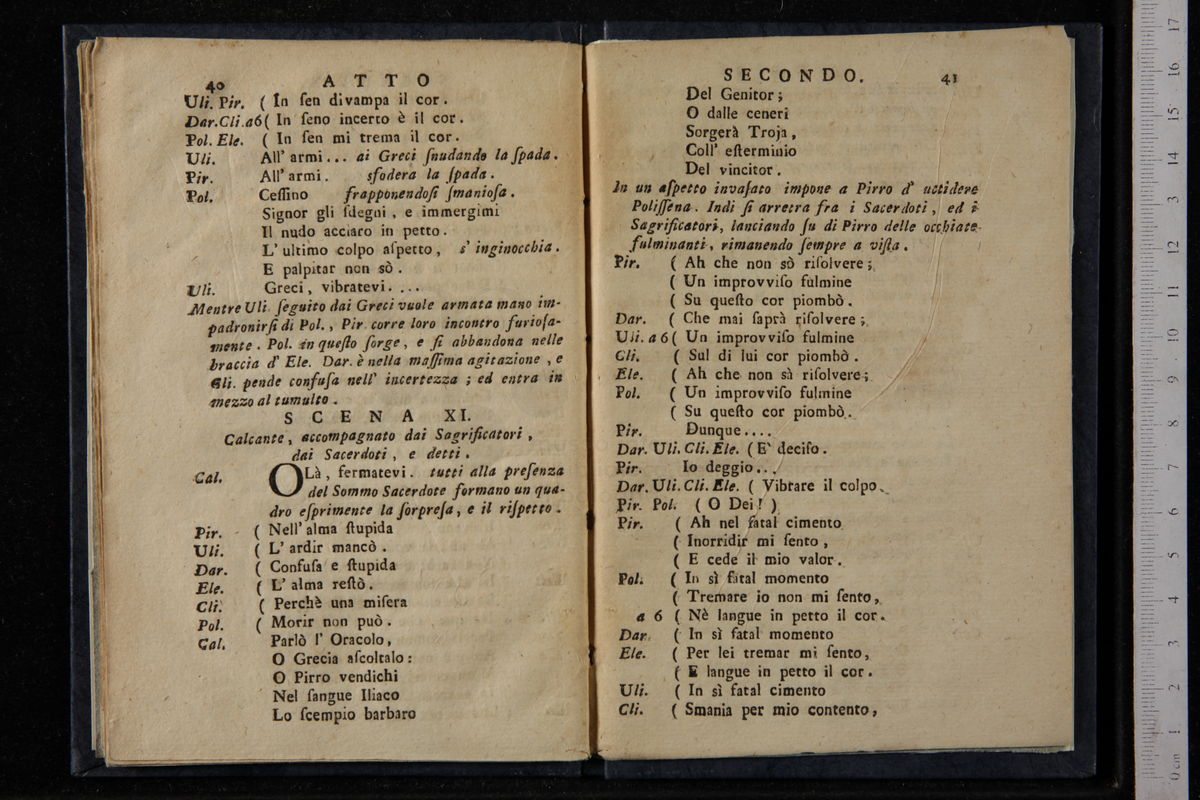 40 ATTO
Uli. Pir. ( In ſen divampa il cor.
Dar.Cli.a6( In ſeno incerto è il cor.
Pol. Ele. ( In ſen mi trema il cor.
Uli. All' armi... ai Greci ſnudando la ſpada.
Pir. All' armi. sfodera la ſpada.
Pol. Ceſſino frapponendoſi ſmanioſa.
Signor gli ſdegni, e immergimi
Il nudo acciaro in petto.
L' ultimo colpo aſpetto, s' inginocchia.
E palpitar non sò.
Uli. Greci, vibratevi....
Mentre Uli. ſeguito dai Greci vuole armata mano im-
padronirſi di Pol., Pir. corre loro incontro furioſa-
mente. Pol. in queſto ſorge, e ſi abbandona nelle
braccia d' Ele. Dar. è nella maſſima agitazione, e
Cli. pende confuſa nell' incertezza; ed entra in
mezzo al tumulto.
SCENA XI.
Calcante, accompagnato dai Sagrificatori,
dai Sacerdoti, e detti.
Cal. OLà, fermatevi. tutti alla preſenza
del Sommo Sacerdote formano un qua-
dro eſprimente la ſorpreſa, e il riſpetto.
Pir. ( Nell' alma ſtupida
Uli. ( L' ardir mancò.
Dar. ( Confuſa e ſtupida
Ele. ( L' alma reſtò.
Cli. ( Perchè una miſera
Pol. ( Morir non può.
Cal. Parlò l' Oracolo,
O Grecia aſcoltalo:
O Pirro vendichi
Nel ſangue Iliaco
Lo ſcempio barbaro
SECONDO. 41
Del Genitor;
O dalle ceneri
Sorgerà Troja,
Coll' eſterminio
Del vincitor.
In un aſpetto invaſato impone a Pirro d' uccidere
Poliſſena. Indi ſi arretra fra i Sacerdoti, ed i
Sagrificatori, lanciando ſu di Pirro delle occhiate
fulminanti, rimanendo ſempre a viſta.
Pir. ( Ah che non sò riſolvere;
( Un improvviſo fulmine
( Su queſto cor piombò.
Dar. ( Che mai ſaprà riſolvere;
Uli. a 6 ( Un improvviſo fulmine
Cli. ( Sul di lui cor piombò.
Ele. ( Ah che non sà riſolvere;
Pol. ( Un improvviſo fulmine
( Su queſto cor piombò.
Pir. Dunque....
Dar. Uli. Cli. Ele. ( E' deciſo.
Pir. Io deggio...
Dar. Uli. Cli. Ele. ( Vibrare il colpo.
Pir. Pol. ( O Dei! )
Pir. ( Ah nel fatal cimento
( Inorridir mi ſento,
( E cede il mio valor.
Pol. ( In sì fatal momento
( Tremare io non mi ſento,
a 6 ( Nè langue in petto il cor.
Dar. ( In sì fatal momento
Ele. ( Per lei tremar mi ſento,
( E langue in petto il cor.
Uli. ( In sì fatal cimento
Cli. ( Smania per mio contento,
0 cm 1 2 3 4 5 6 7 8 9 10 11 12 13 14 15 16 17